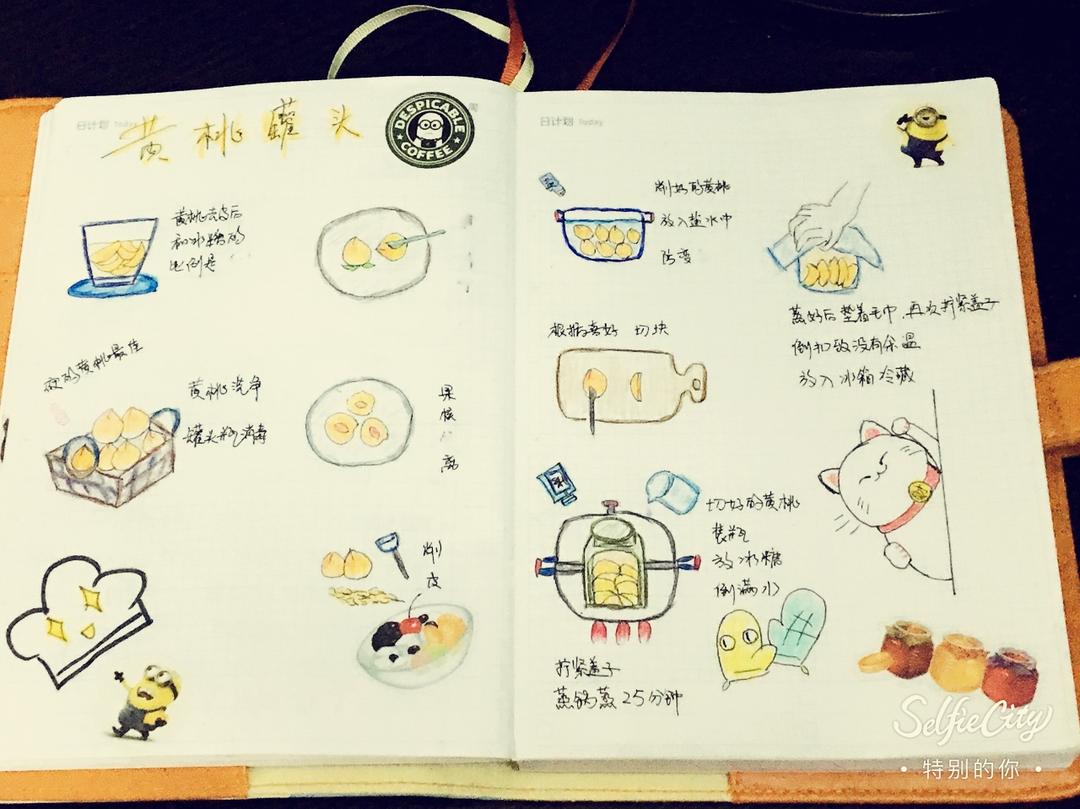 日计划 Today
黄桃罐头
DESPICABLE
COFFEE
黄桃去皮后
和冰糖的
比例是
硬的黄桃最佳
黄桃洗净
罐头瓶消毒
果
核
离
削
皮
日计划 Today
削好的黄桃
放入盐水中
防变
根据喜好 切块
切好的黄桃
装瓶
放冰糖
倒满水
拧紧盖子
蒸锅蒸25分钟
蒸好后垫着毛巾，再次拧紧盖子
倒扣致没有余温
放入冰箱冷藏
SelfieCity
• 特别的你 •